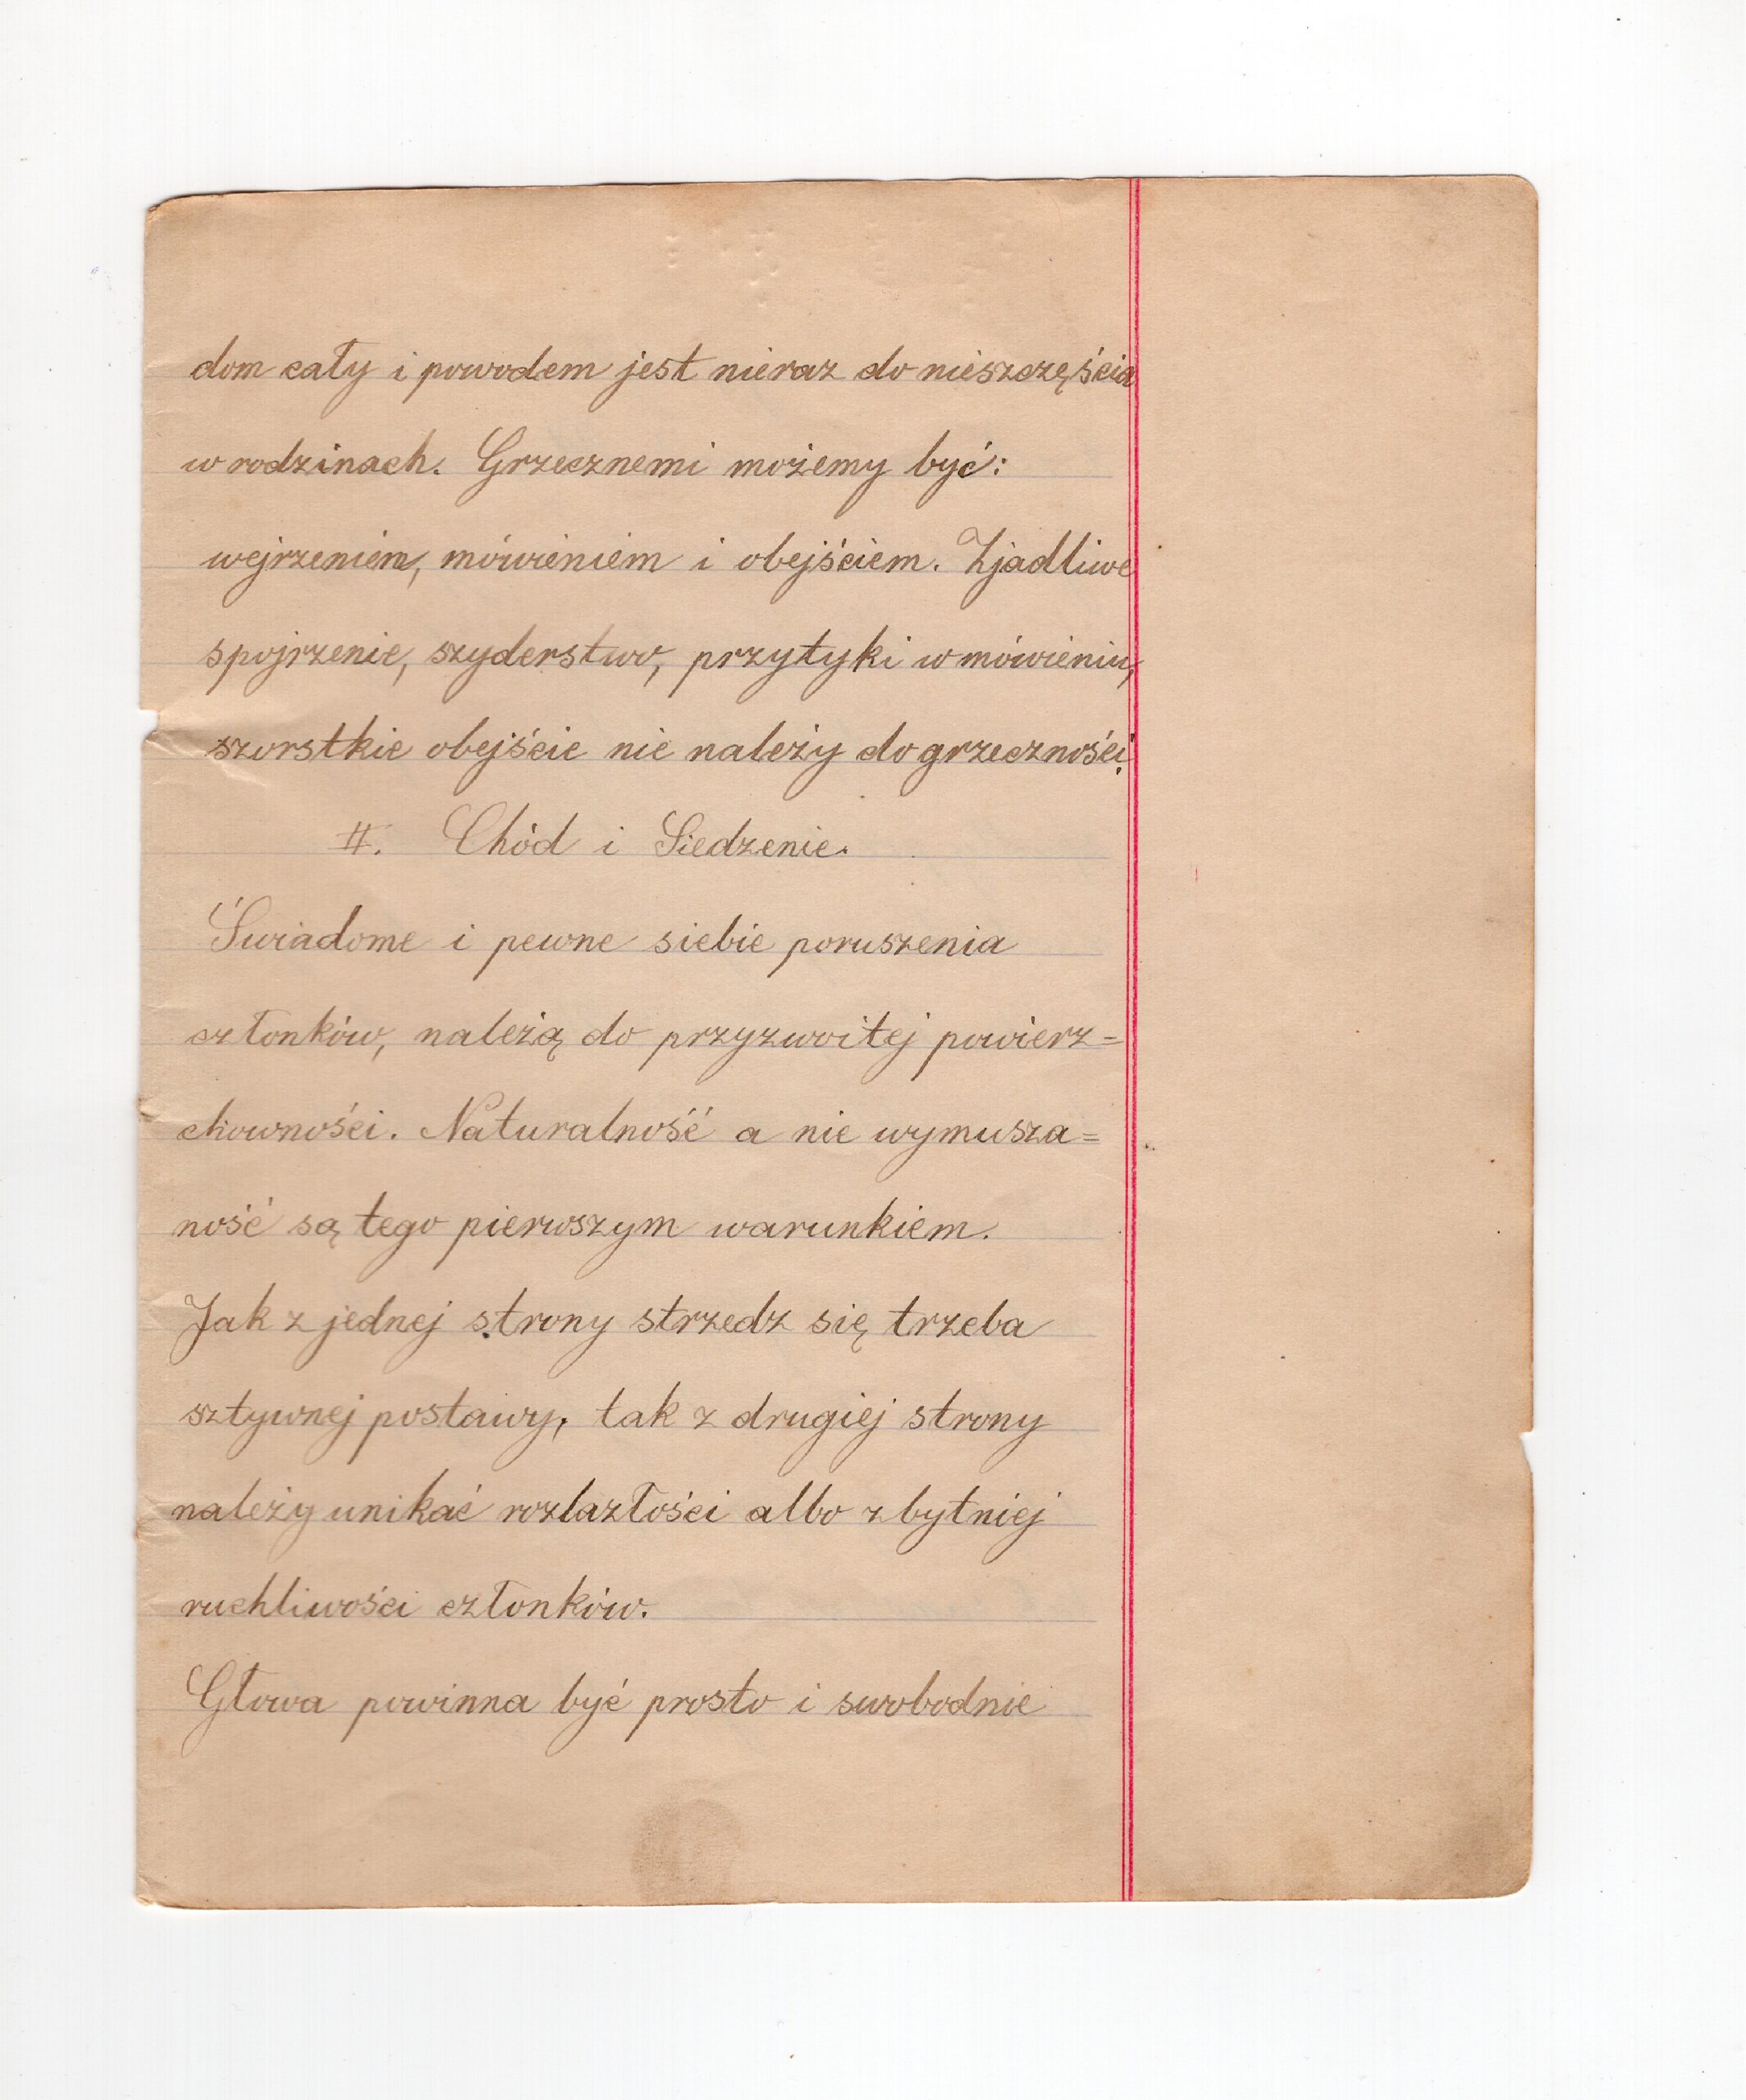 dom cały i powodem jest nieraz do nieszczęścia
w rodzinach. Grzecznemi możemy być:
wejrzeniem, mówieniem i obejściem. Zjadliwe
spojrzenie, szyderstwo, przytyki w mówieniu,
szorstkie obejście nie należy do grzeczności.
II. Chód i Siedzenie.
Świadome i pewne siebie poruszenia
członków, należą do przyzwoitej powierz=
chowności. Naturalność a nie wymusza=
ność są tego pierwszym warunkiem.
Jak z jednej strony strzedz się trzeba
sztywnej postawy, tak z drugiej strony
należy unikać rozlazłości albo zbytniej
ruchliwości członków.
Głowa powinna być prosto i swobodnie